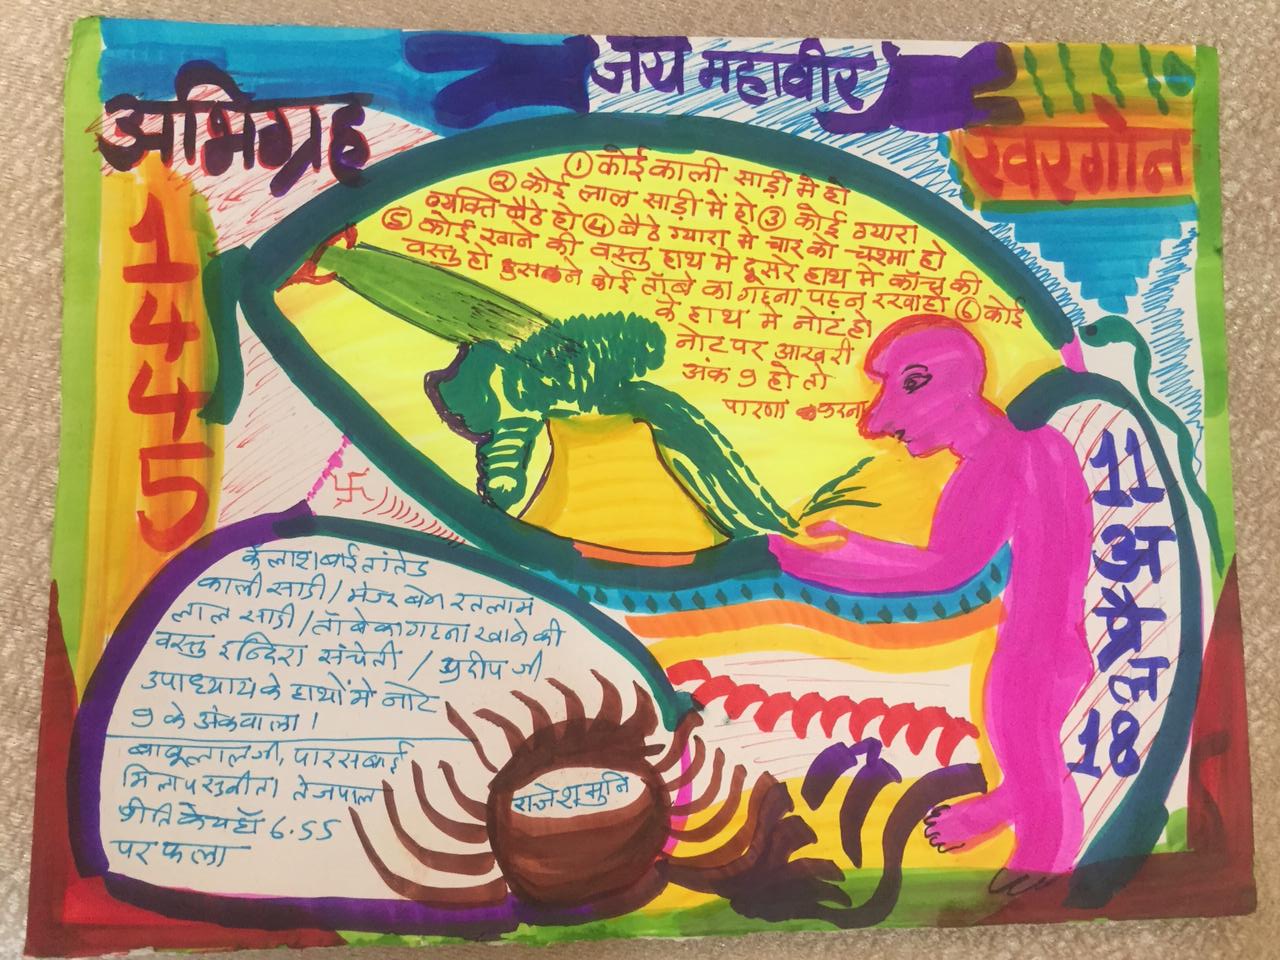 जय महावीर
अभिग्रह
खरगोन
1445
① कोई काली साड़ी में हो
② कोई लाल साड़ी में हो ③ कोई ग्यारा
व्यक्ति बैठे हो ④ बैठे ग्यारा में चार को चश्मा हो
⑤ कोई खाने की वस्तु हाथ में दूसरे हाथ में काँच की
वस्तु हो कोई ताँबे का गहना पहन रखा हो ⑥ कोई
के हाथ में नोट हो
नोट पर आखरी
अंक 9 हो तो
पारणा करना
11 अगस्त 18
कैलाशबाई तांतेड
काली साडी / मेजर बम रतलाम
लाल साडी / ताँबे का गहना खाने की
वस्तु इन्दिरा संचेती / प्रदीप जी
उपाध्याय के हाथों में नोट
9 के अंकवाला।
बाबूलालजी, पारसबाई
मिलाप सुनीता तेजपाल
प्रीति के यहाँ 6.55
पर फला
राजेशमुनि